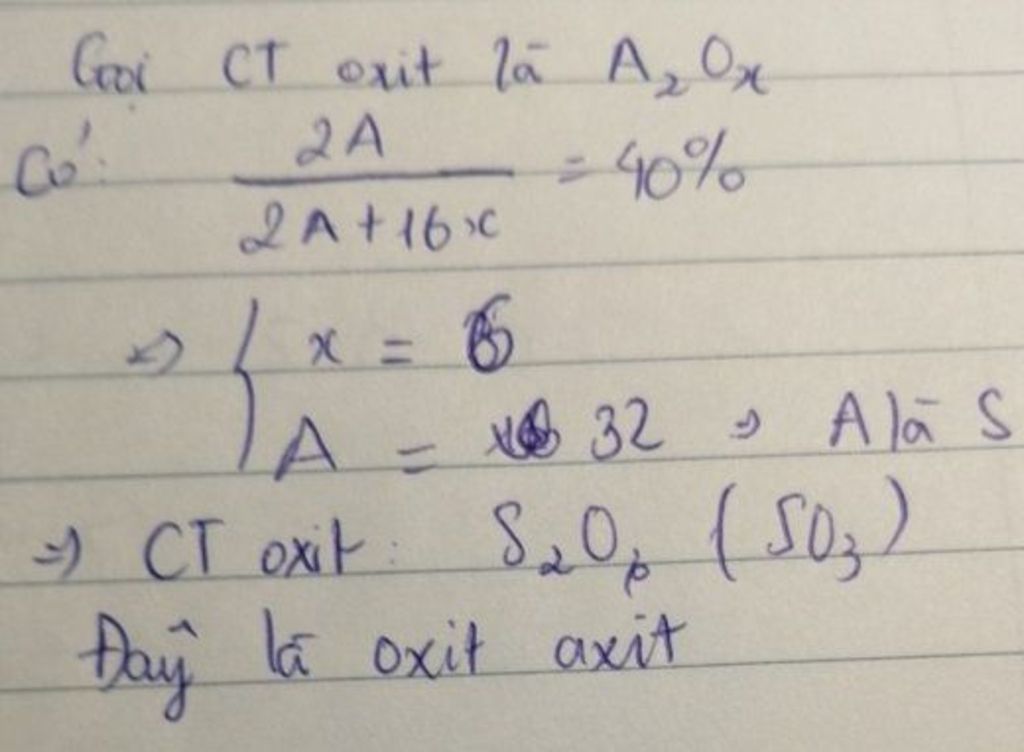 Gọi CT oxit là A₂Oₓ
Có: 2A / (2A + 16x) = 40%
⇔ { x = 6
A = 32 ⇒ A là S
⇒ CT oxit: S₂O₆ (SO₃)
Đây là oxit axit